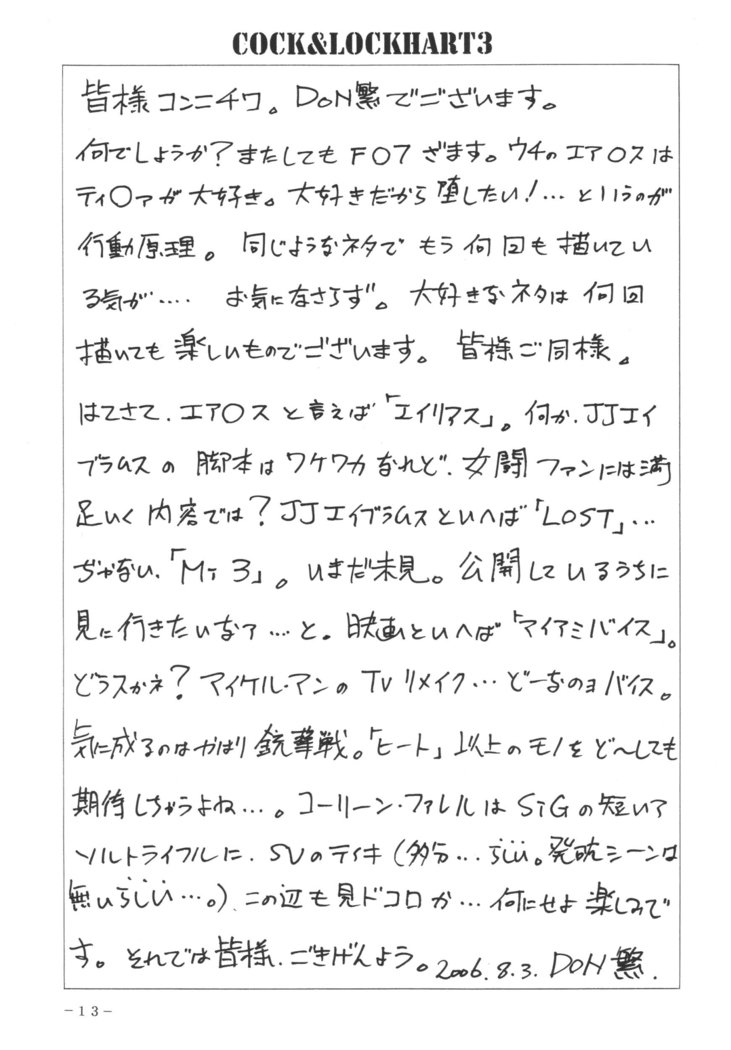 COCK&LOCKHART3
皆様コンニチワ。DON繁でございます。
何でしょうか?またしてもFO7ざます。ウチのエア〇スは
ティ〇ァが大好き。大好きだから堕したい!…というのが
行動原理。同じようなネタでもう何回も描いてい
る気が…. お気になさらず。大好きなネタは何回
描いても楽しいものでございます。皆様ご同様。
はてさて、エア〇スと言えば「エイリアス」。何か、JJエイ
ブラムスの脚本はワケワカなれど、女闘ファンには満
足いく内容では?JJエイブラムスといへば「LOST」…
ぢゃない、「Mi3」。いまだ未見。公開しているうちに
見に行きたいなァ…と。映画といへば「マイアミバイス」。
どうスかネ?マイケル・マンのTVリメイク…どーなのョバイス。
気に成るのはやはり銃撃戦。「ヒート」以上のモノをど〜しても
期待しちゃうよね…。コーリーン・ファレルはSiGの短いア
ソルトライフルに、SVのティキ(多分…らしい。発砲シーンは
無いらしい…。)、この辺も見ドコロか…何にせよ楽しみで
す。それでは皆様、ごきげんよう。2006.8.3. DON繁.
-13-